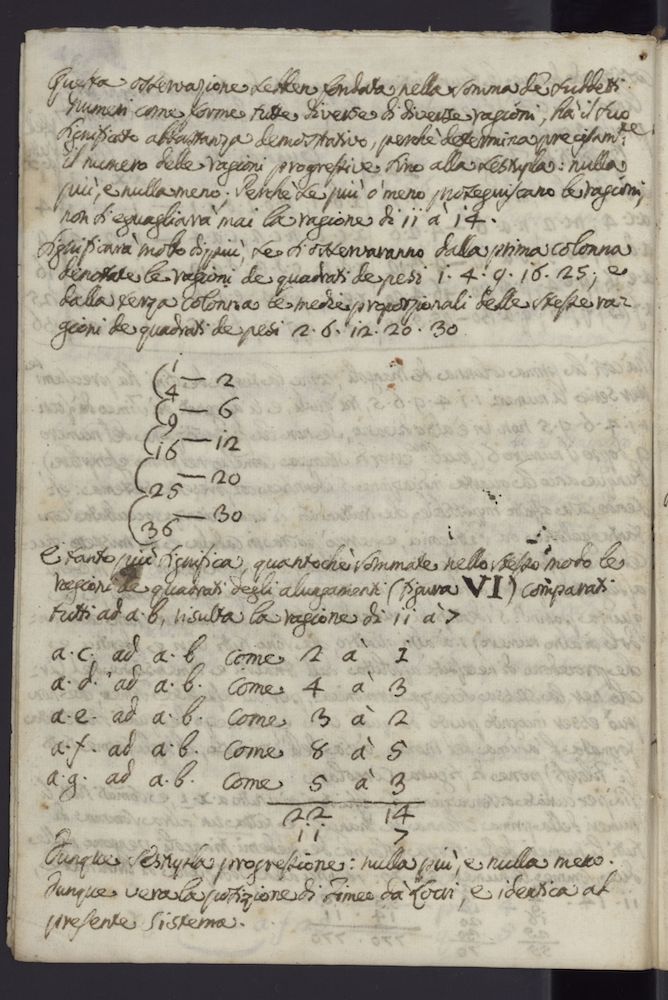 Questa osservazione benchè fondata nella somma de suddetti
numeri come forme tutte diverse di diverse ragioni, hà il suo
significato abbastanza demostrativo, perchè determina precisam.te
il numero delle ragioni progressive sino alla sestupla: nulla
più, e nulla meno. Perchè se più ò meno proseguiscano le ragioni,
non si eguagliarà mai la ragione di 11 à 14.
Significarà molto di più, se si osservaranno dalla prima colonna
denotate le ragioni de quadrati de pesi 1. 4. 9. 16. 25; e
dalla terza colonna le medie proporzionali delle stesse ra-
gioni de quadrati de pesi 2. 6. 12. 20. 30
1 — 2
4 — 6
9 — 12
16 — 20
25 — 30
36
E tanto più significa, quantochè sommate nello stesso modo le
ragioni de quadrati degli alungamenti (figura VI) comparati
tutti ad a.b, risulta la ragione di 11 à 7
a. c. ad a. b come 2 à 1
a. d. ad a. b. come 4 à 3
a. e. ad a. b. come 3 à 2
a. f. ad a. b. come 8 à 5
a. g. ad a. b. come 5 à 3
22 14
11 7
Dunque sestupla progressione: nulla più, e nulla meno.
Dunque vera la posizione di Timeo da Locri, e identica al
presente Sistema.